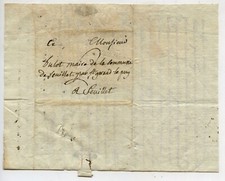 A Monsieur
Dulot maire de la commune
de Seuillet, par St gerand le puy
A Seuillet